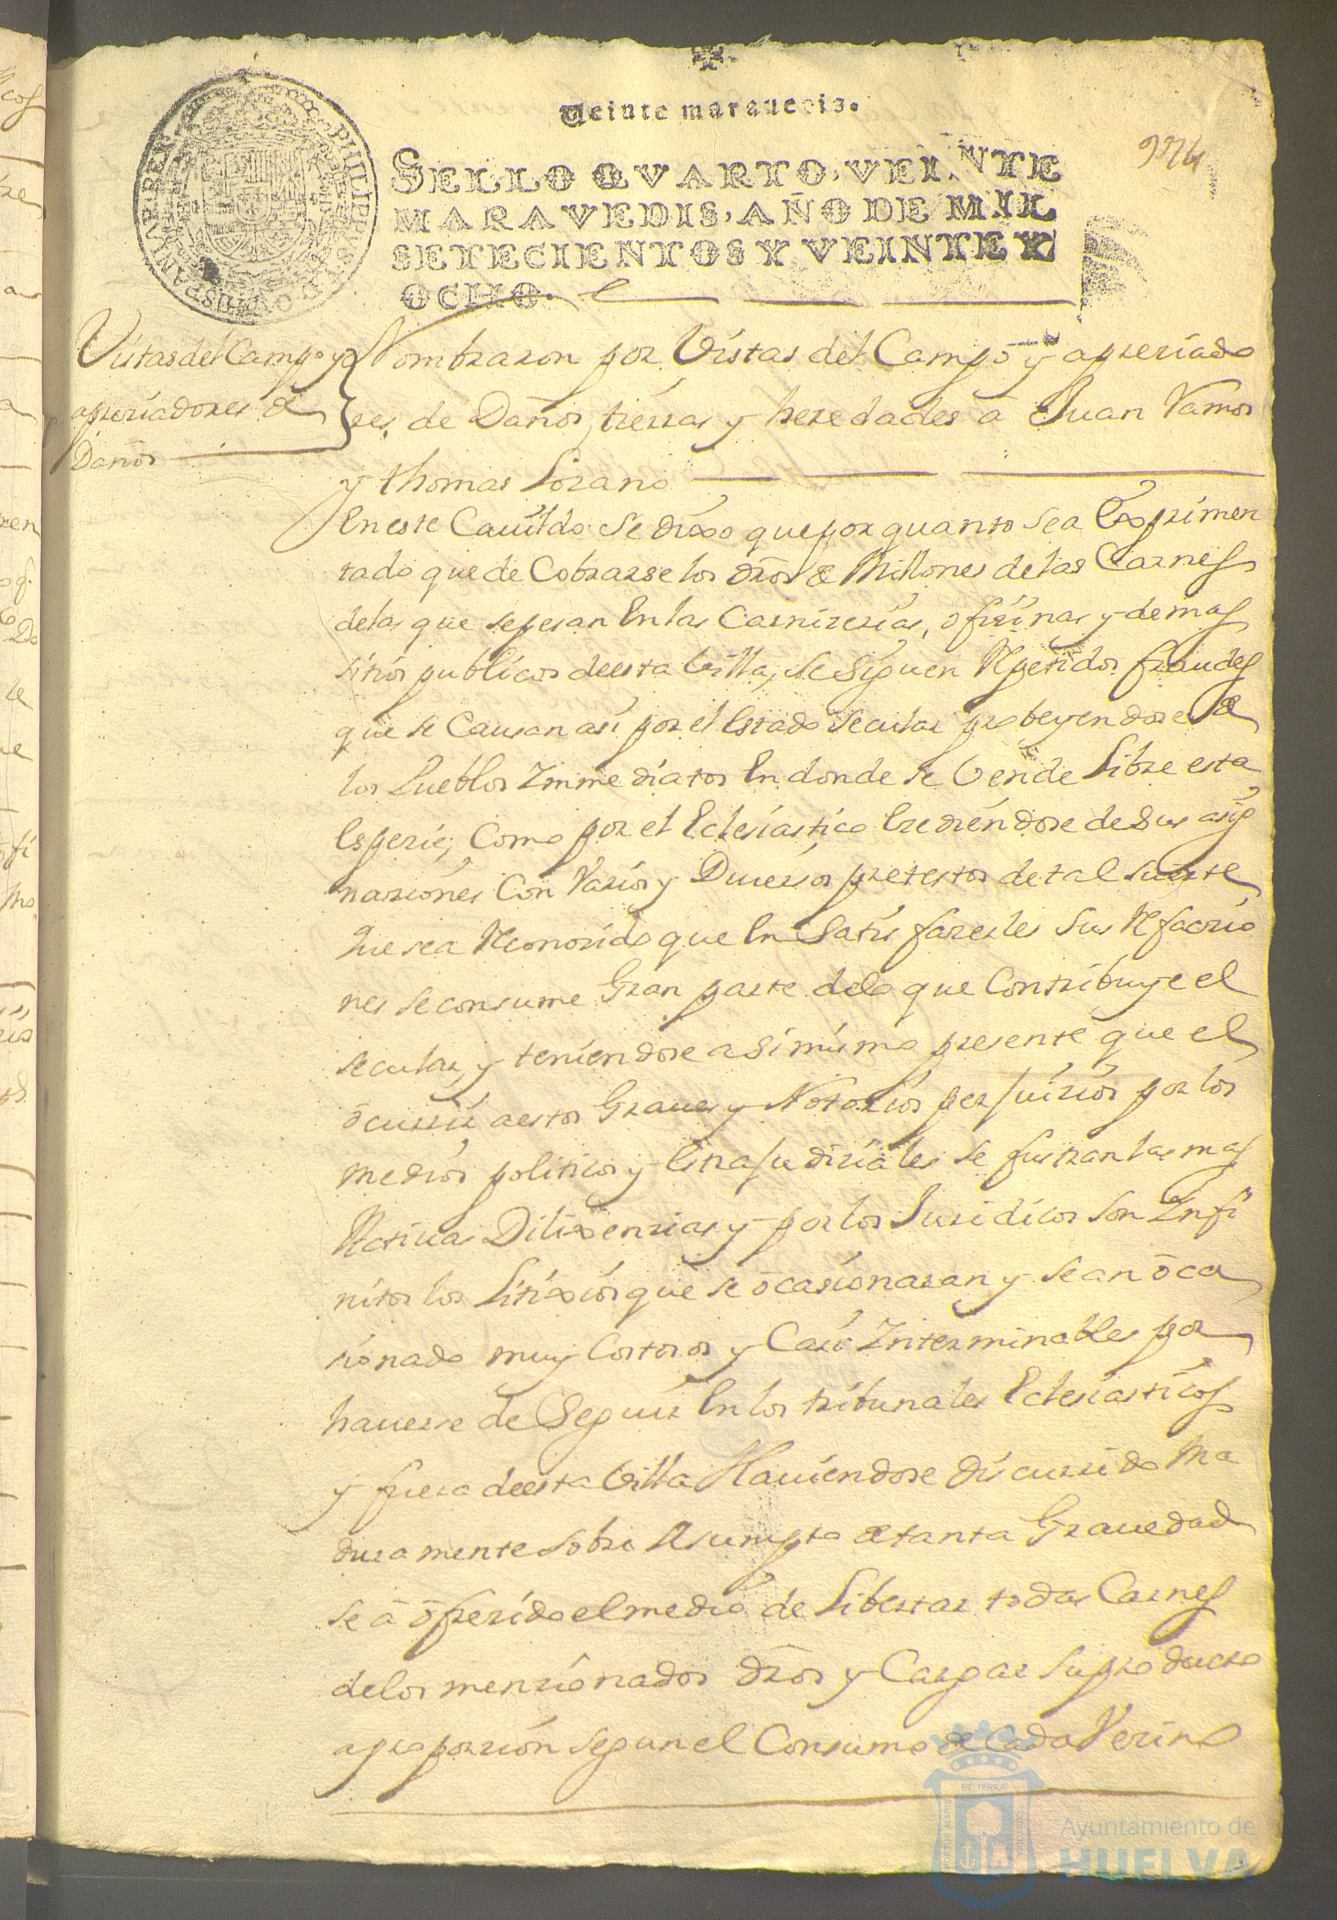 Veinte maravedis.
SELLO QVARTO, VEINTE
MARAVEDIS, AÑO DE MIL
SETECIENTOS Y VEINTE Y
OCHO.
PHILIPPUS V
HISPANIAR REX
Vistas del Campo y
apreciadores de
Daños
Nombraron por Vistas del Campo y apreciado
res de Daños, tierras y heredades a Juan Ramos
y thomas Lozano
En este Cavildo se dixo que por quanto se a Experimen
tado que de Cobrarse los dros de Millones de las Carnes
de las que se pesan En las Carnizerias, ofizinas y demas
sitios publicos de esta Villa, se siguen Repetidos fraudes
que se Causan asi por el Estado secular probeyendose de
los Pueblos Inmediatos En donde se Vende Libre esta
Espezie, Como por el Eclesiastico Excediendose de sus asig
naziones Con Varios y Diversos pretextos de tal suerte
que se a Reconozido que En Satisfazerles sus Refaczio
nes se consume Gran parte de lo que Contribuye el
secular, y teniendose asi mismo presente que el
ocurrir a estos Graues y Notorios perjuizios por los
medios politicos y Extrajudiziales se frustran las mas
Activas Dilixenzias y por los Juridicos son Infi
nitos los Litixios que se ocasionaran y se an oca
sionado muy Costosos y Casi Interminables por
hauerse de Seguir En los tribunales Eclesiasticos
y fuera de esta Villa Hauiendose discurrido Ma
duramente sobre Asumpto de tanta Gravedad
se a ofrezido el medio de Libertar todas Carnes
de los menzionados dros y Cargar su producto
a proporzion segun el Consumo de Cada Vezino
Ayuntamiento de
HUELVA